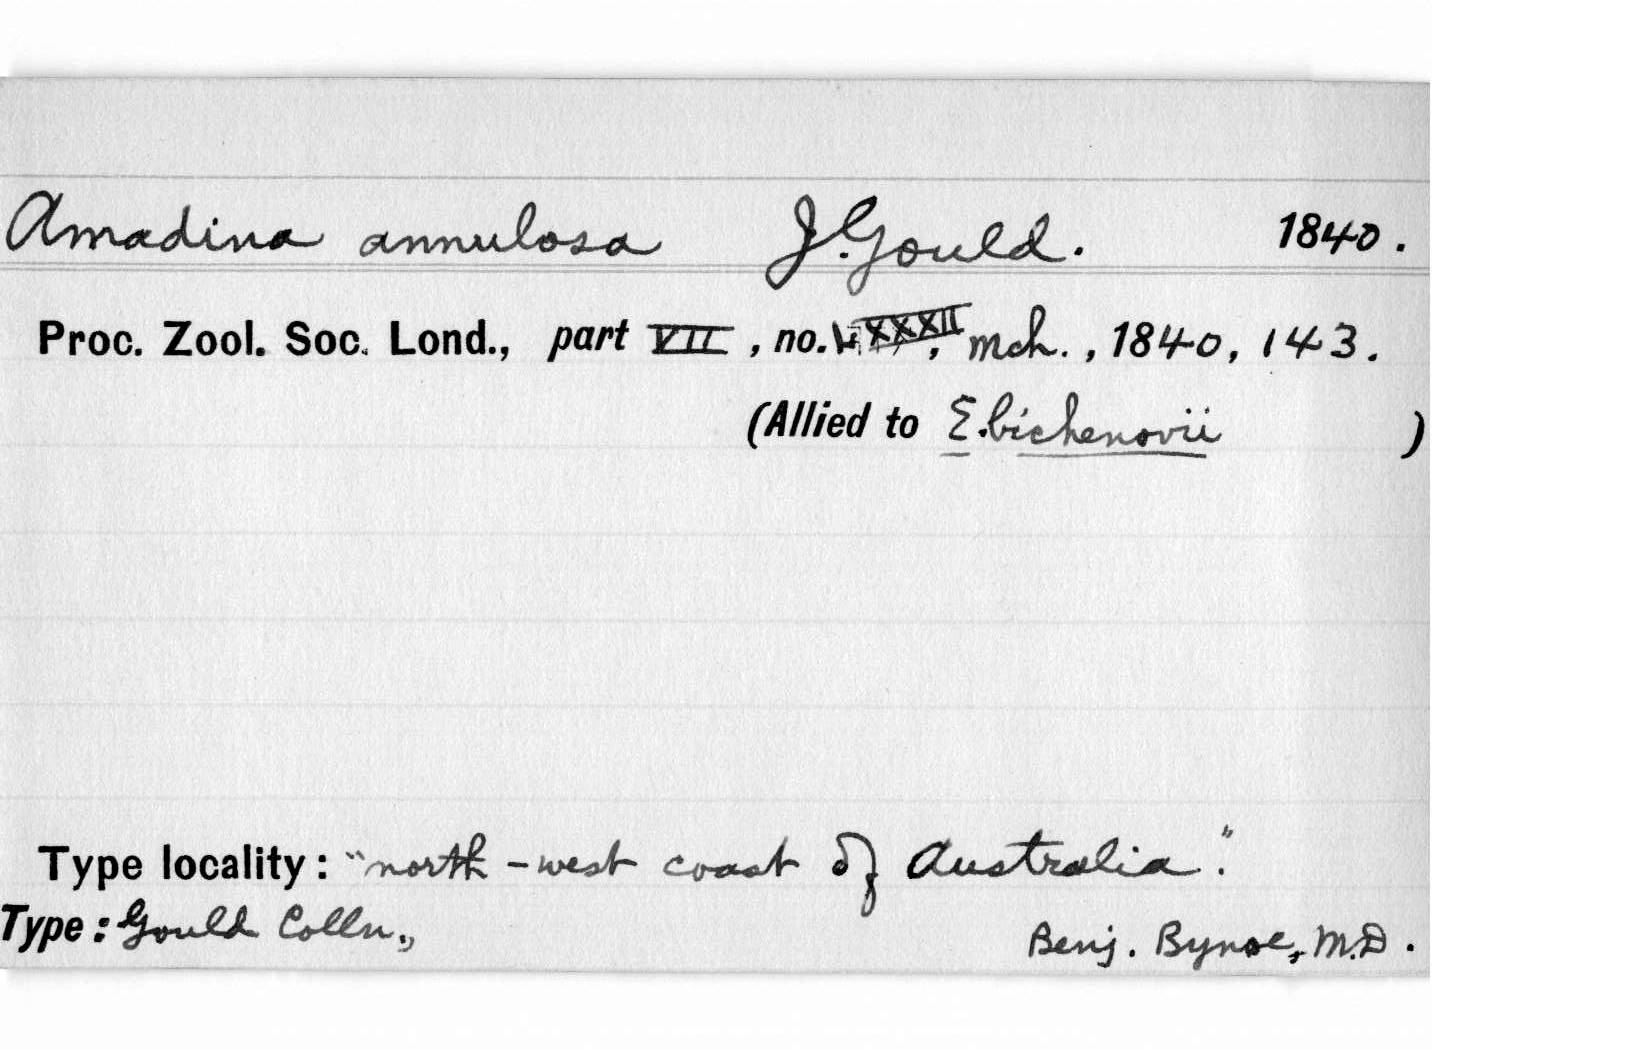 Amadina annulosa J. Gould. 1840.
Proc. Zool. Soc. Lond., part VII, no. LXXXII, mch., 1840, 143.
(Allied to E. bichenovii )
Type locality: "north-west coast of Australia."
Type: Gould Colln., Benj. Bynoe, M.D.